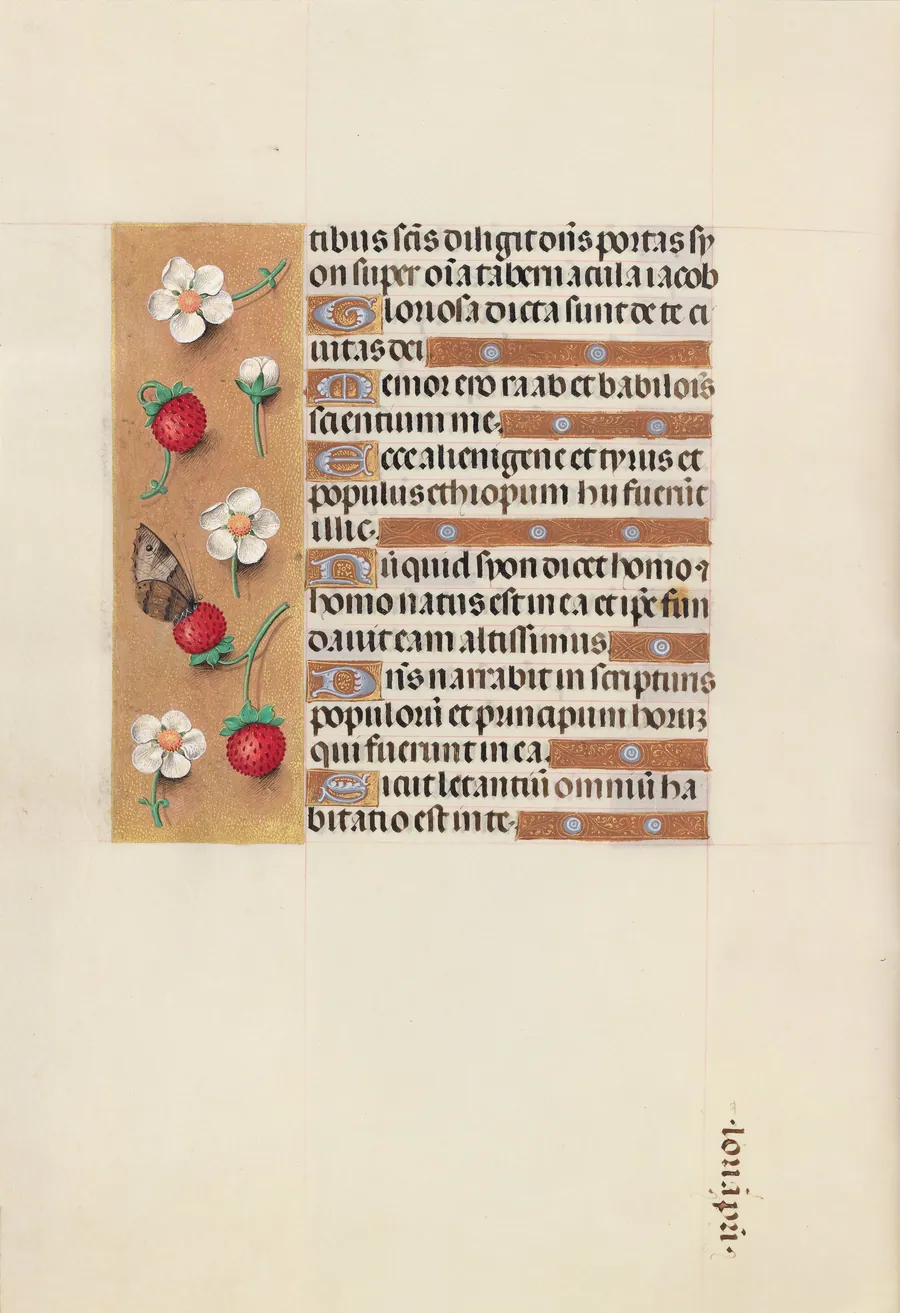 tibus sc̄is diligit dn̄s portas sy
on super om̄ia tabernacula iacob
Gloriosa dicta sunt de te ci
uitas dei
Memor ero raab et babilois̄
scientium me.
Ecce alienigene et tyrus et
populus ethiopum hii fuerūt
illic.
Nūquid syon dicet homo ⁊
homo natus est in ea et ip̄e fun
dauit eam altissimus.
Dn̄s narrabit in scripturis
populorū et principum horuꝫ
qui fuerunt in ea.
Sicut letantiū omniū ha
bitatio est in te.